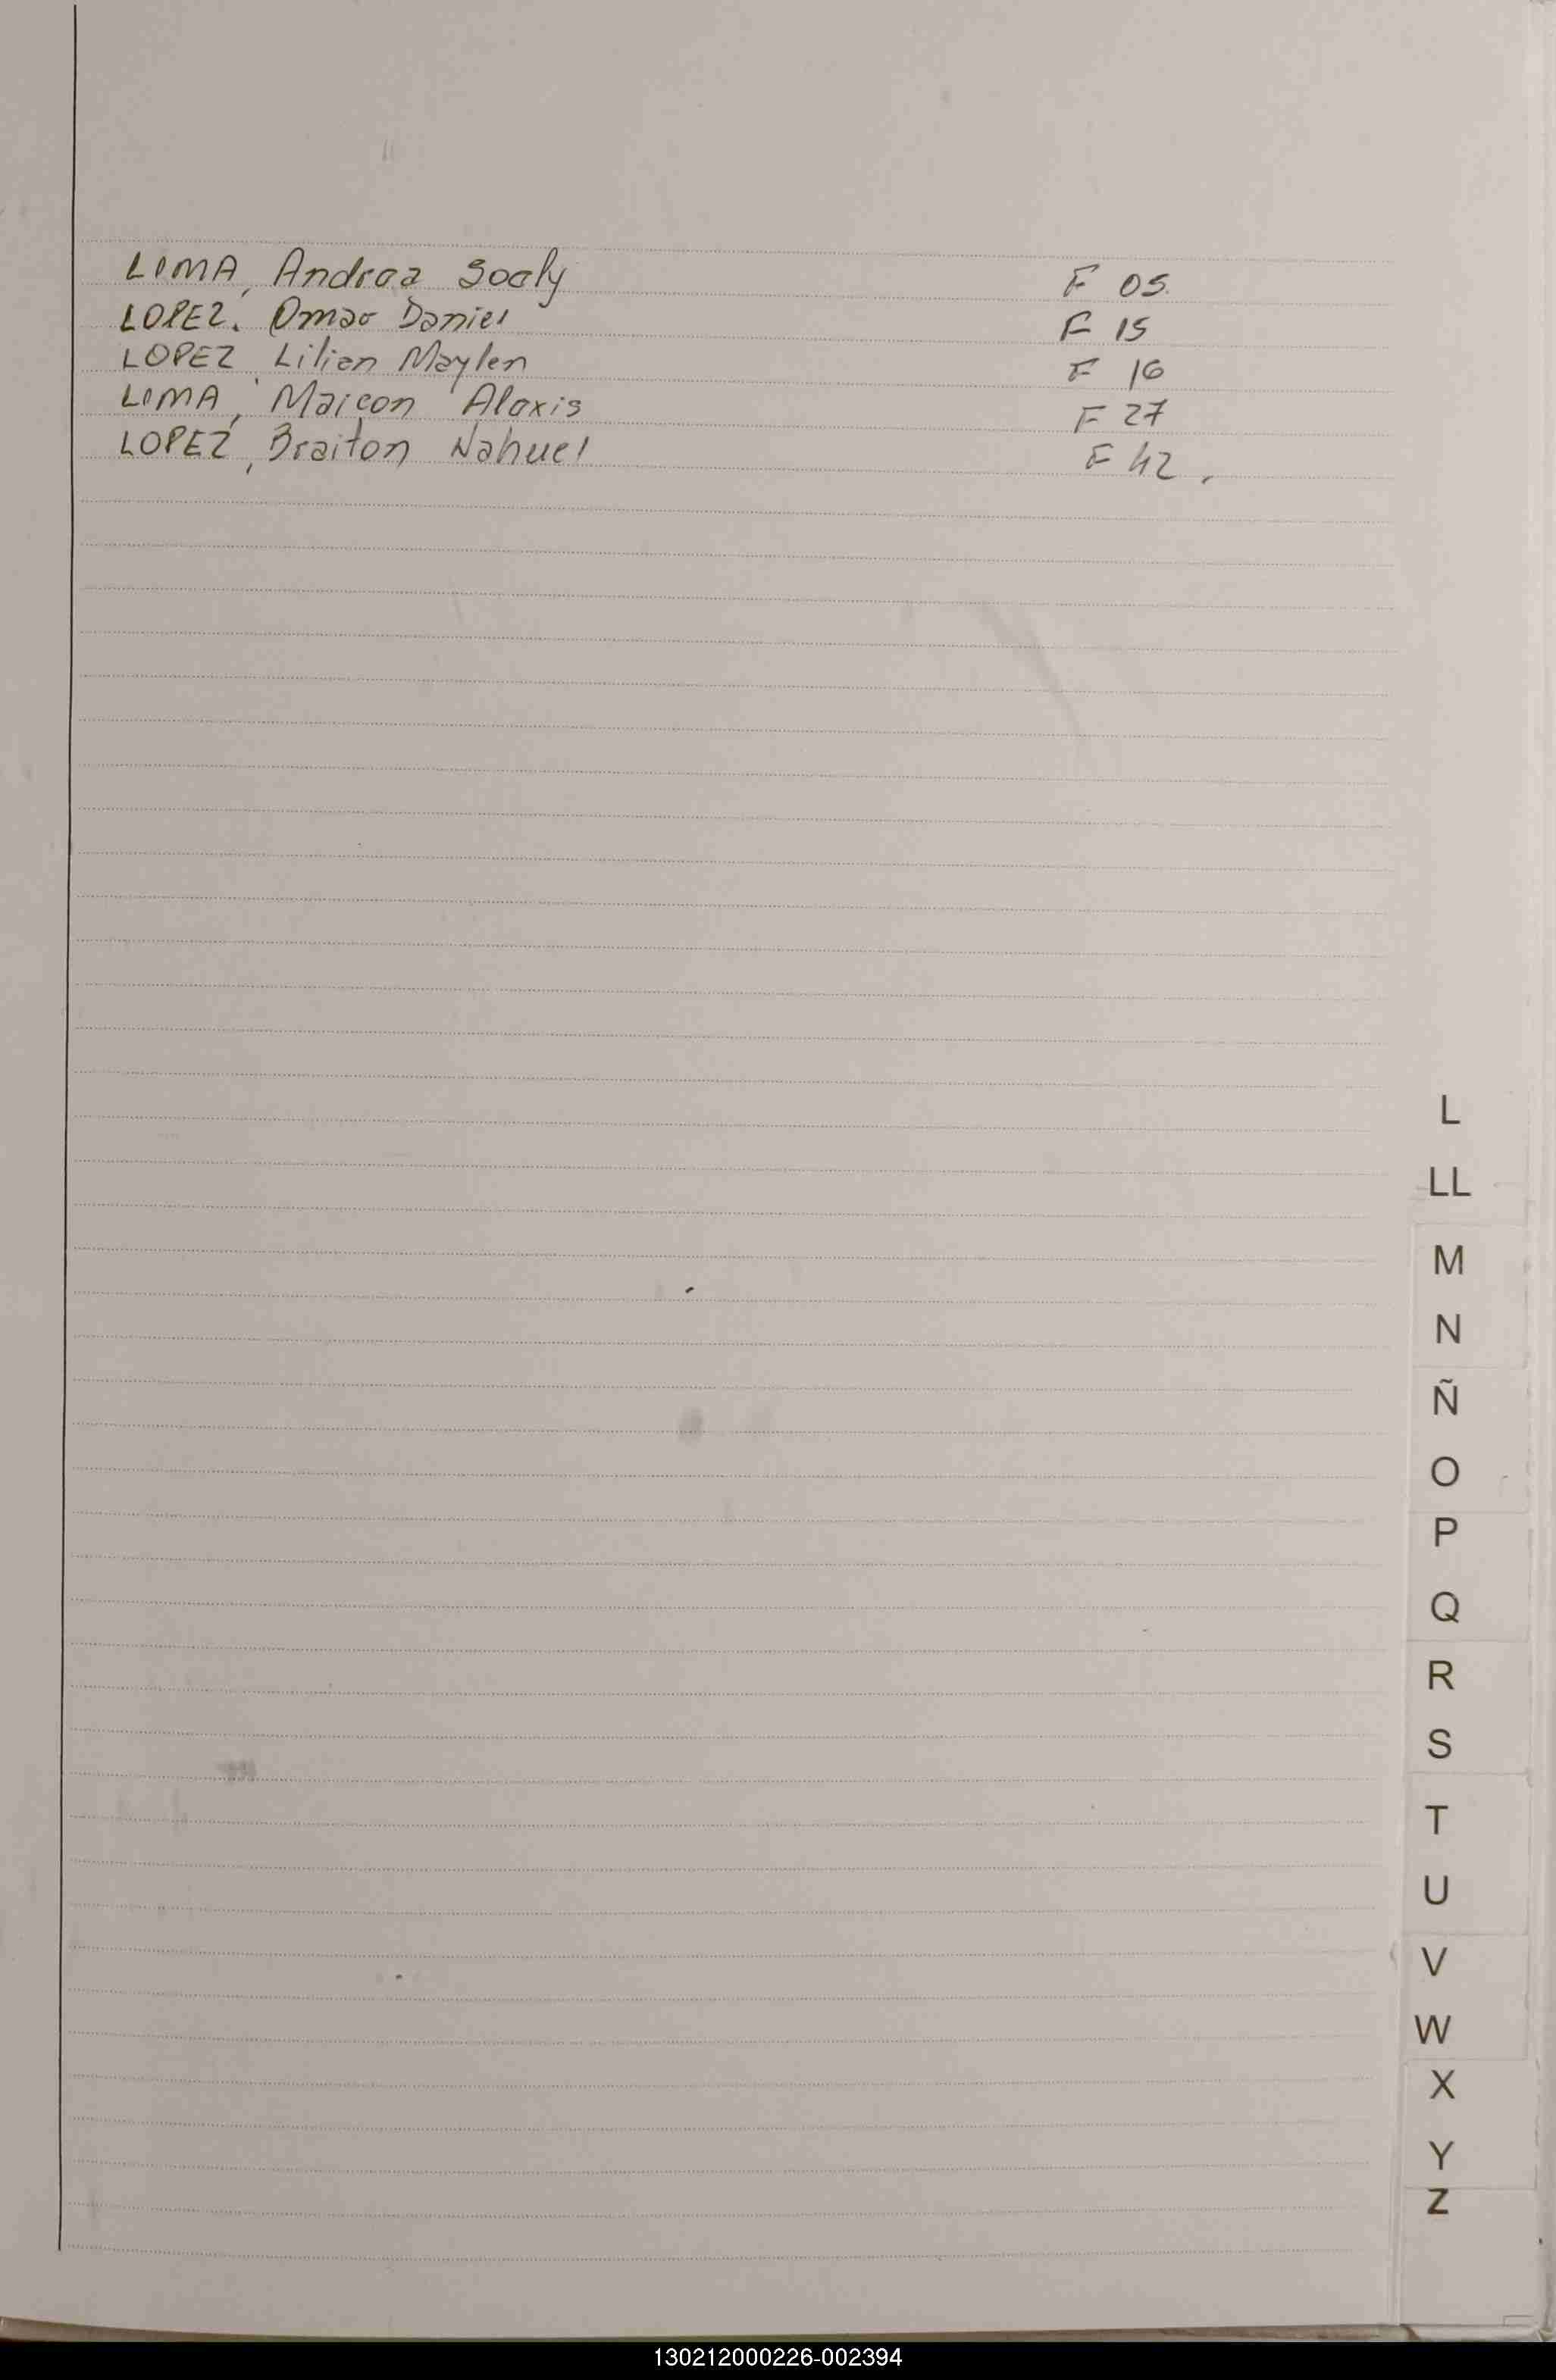 LIMA, Andrea Soely F 05.
LOPEZ, Omar Daniel F 15
LOPEZ, Lilian Maylen F 16
LIMA, Maicon Alexis F 27
LOPEZ, Braiton Nahuel F 42.
L
LL
M
N
Ñ
O
P
Q
R
S
T
U
V
W
X
Y
Z
130212000226-002394